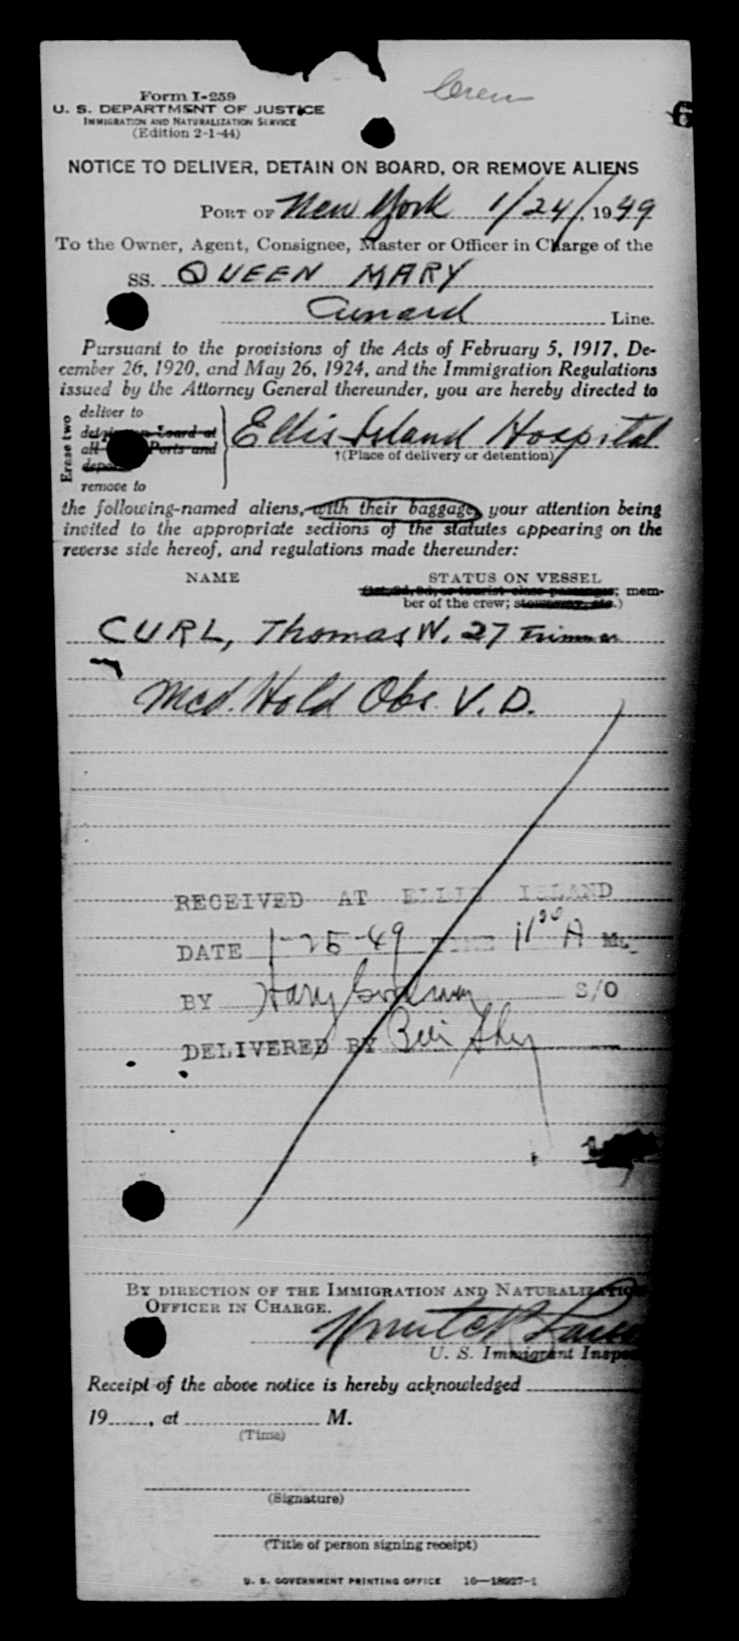 Crew
Form I-259
U. S. DEPARTMENT OF JUSTICE
IMMIGRATION AND NATURALIZATION SERVICE
(Edition 2-1-44)
6
NOTICE TO DELIVER, DETAIN ON BOARD, OR REMOVE ALIENS
PORT OF New York 1/24/, 1949
To the Owner, Agent, Consignee, Master or Officer in Charge of the
SS. QUEEN MARY
Cunard Line.
Pursuant to the provisions of the Acts of February 5, 1917, De-
cember 26, 1920, and May 26, 1924, and the Immigration Regulations
issued by the Attorney General thereunder, you are hereby directed to
Erase two
deliver to
board at
Ports and
remove to
Ellis Island Hospital
†(Place of delivery or detention)
the following-named aliens, with their baggage, your attention being
invited to the appropriate sections of the statutes appearing on the
reverse side hereof, and regulations made thereunder:
NAME STATUS ON VESSEL
(1st, 2d, 3d, or tourist class passenger; mem-
ber of the crew; stowaway, etc.)
CURL, Thomas W. 27 Trimmer
Med. Hold Obs. V. D.
RECEIVED AT ELLIS ISLAND
DATE 1-25-49 TIME 11 A M.
BY Harry S/O
DELIVERED BY
BY DIRECTION OF THE IMMIGRATION AND NATURALIZATION
OFFICER IN CHARGE.
U. S. Immigrant Inspe
Receipt of the above notice is hereby acknowledged
19 , at M.
(Time)
(Signature)
(Title of person signing receipt)
U. S. GOVERNMENT PRINTING OFFICE 16—18927-1